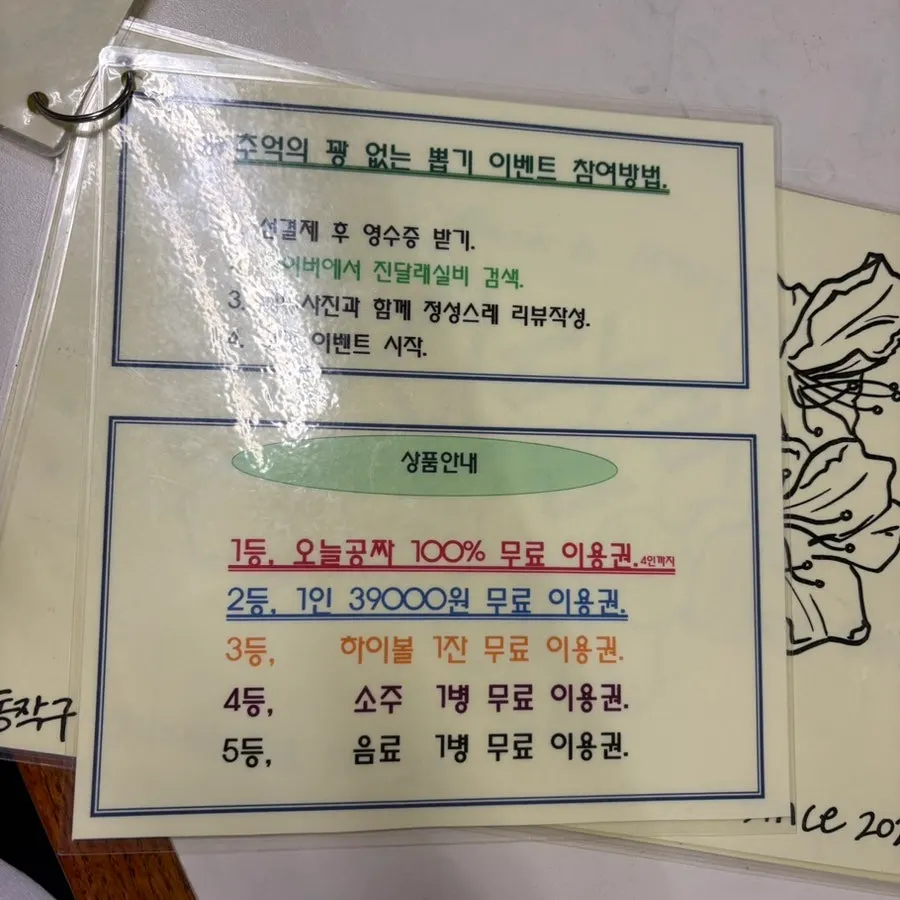 추억의 꽝 없는 뽑기 이벤트 참여방법.
선결제 후 영수증 받기.
진달래실비 검색.
3. 사진과 함께 정성스레 리뷰작성.
4. 이벤트 시작.
상품안내
1등, 오늘공짜 100% 무료 이용권. 4인까지
2등, 1인 39000원 무료 이용권.
3등, 하이볼 1잔 무료 이용권.
4등, 소주 1병 무료 이용권.
5등, 음료 1병 무료 이용권.
동작구